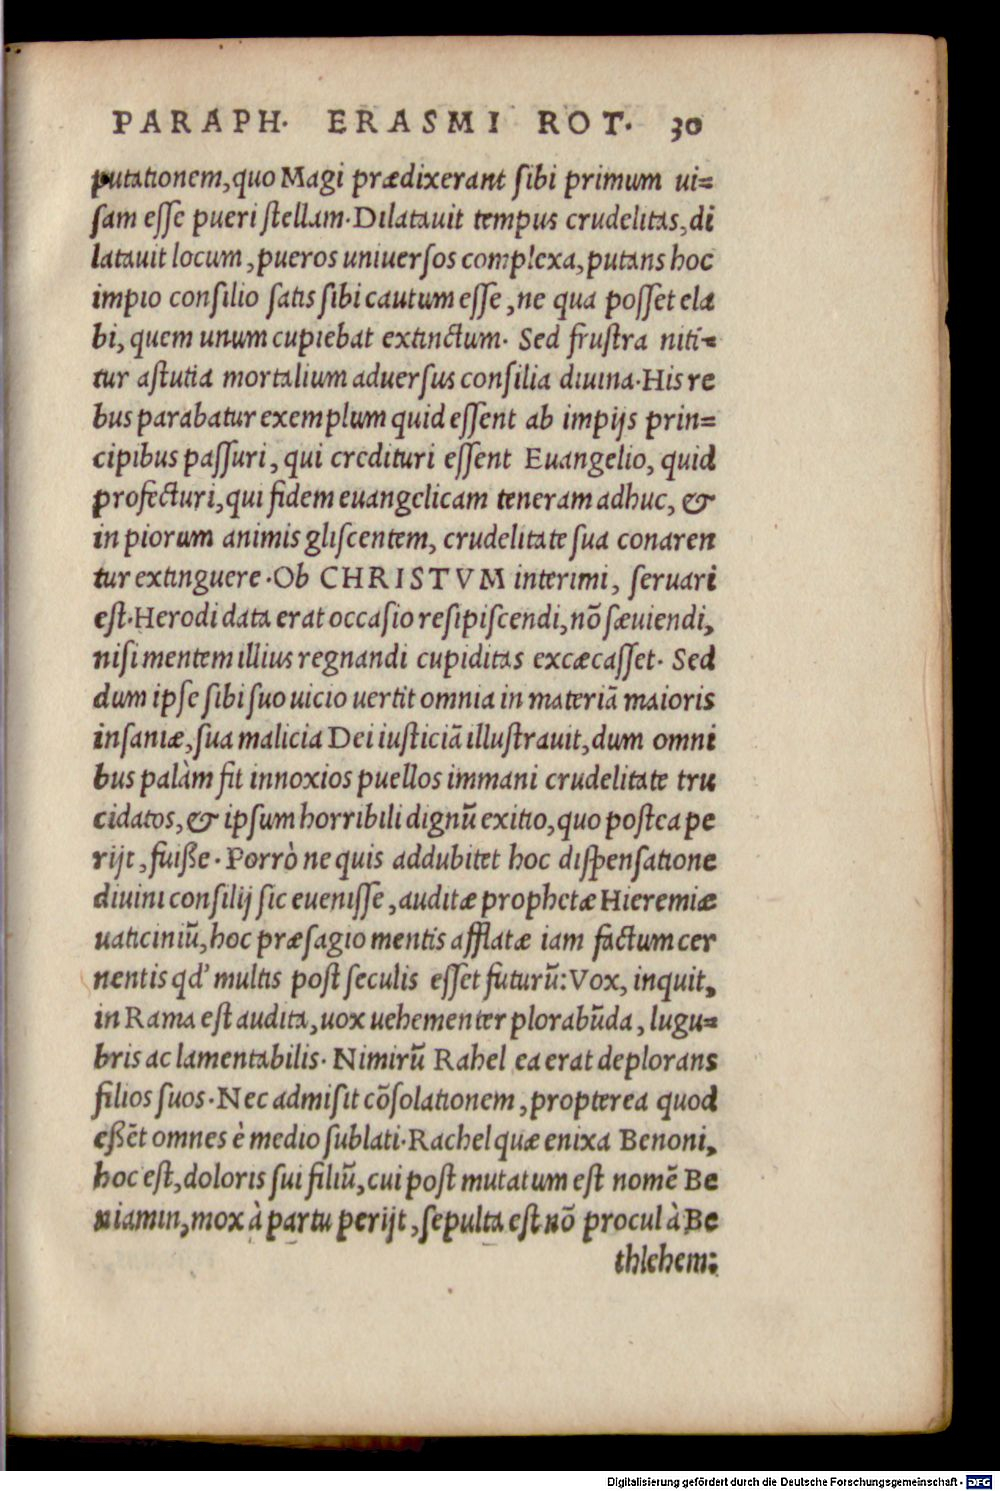 PARAPH. ERASMI ROT. 30
putationem, quo Magi prædixerant ſibi primum ui=
ſam eſſe pueri ſtellam. Dilatauit tempus crudelitas, di
latauit locum, pueros uniuerſos complexa, putans hoc
impio conſilio ſatis ſibi cautum eſſe, ne qua poſſet ela
bi, quem unum cupiebat extinctum. Sed fruſtra niti=
tur aſtutia mortalium aduerſus conſilia diuina. His re
bus parabatur exemplum quid eſſent ab impijs prin=
cipibus paſſuri, qui credituri eſſent Euangelio, quid
profecturi, qui fidem euangelicam teneram adhuc, &
in piorum animis gliſcentem, crudelitate ſua conaren
tur extinguere. Ob CHRISTVM interimi, ſeruari
eſt. Herodi data erat occaſio reſipiſcendi, nõ ſæuiendi,
niſi mentem illius regnandi cupiditas excæcaſſet. Sed
dum ipſe ſibi ſuo uicio uertit omnia in materiã maioris
inſaniæ, ſua malicia Dei iuſticiã illuſtrauit, dum omni
bus palàm fit innoxios puellos immani crudelitate tru
cidatos, & ipſum horribili dignũ exitio, quo poſtea pe
rijt, fuiße. Porrò ne quis addubitet hoc diſpenſatione
diuini conſilij ſic eueniſſe, auditæ prophetæ Hieremiæ
uaticiniũ, hoc præſagio mentis afflatæ iam factum cer
nentis qd' multis poſt ſeculis eſſet futurũ: Vox, inquit,
in Rama eſt audita, uox uehementer plorabũda, lugu=
bris ac lamentabilis. Nimirũ Rahel ea erat deplorans
filios ſuos. Nec admiſit cõſolationem, propterea quod
eßẽt omnes è medio ſublati. Rachel quæ enixa Benoni,
hoc eſt, doloris ſui filiũ, cui poſt mutatum eſt nomẽ Be
niamin, mox à partu perijt, ſepulta eſt nõ procul à Be
thlehem:
Digitalisierung gefördert durch die Deutsche Forschungsgemeinschaft - DFG